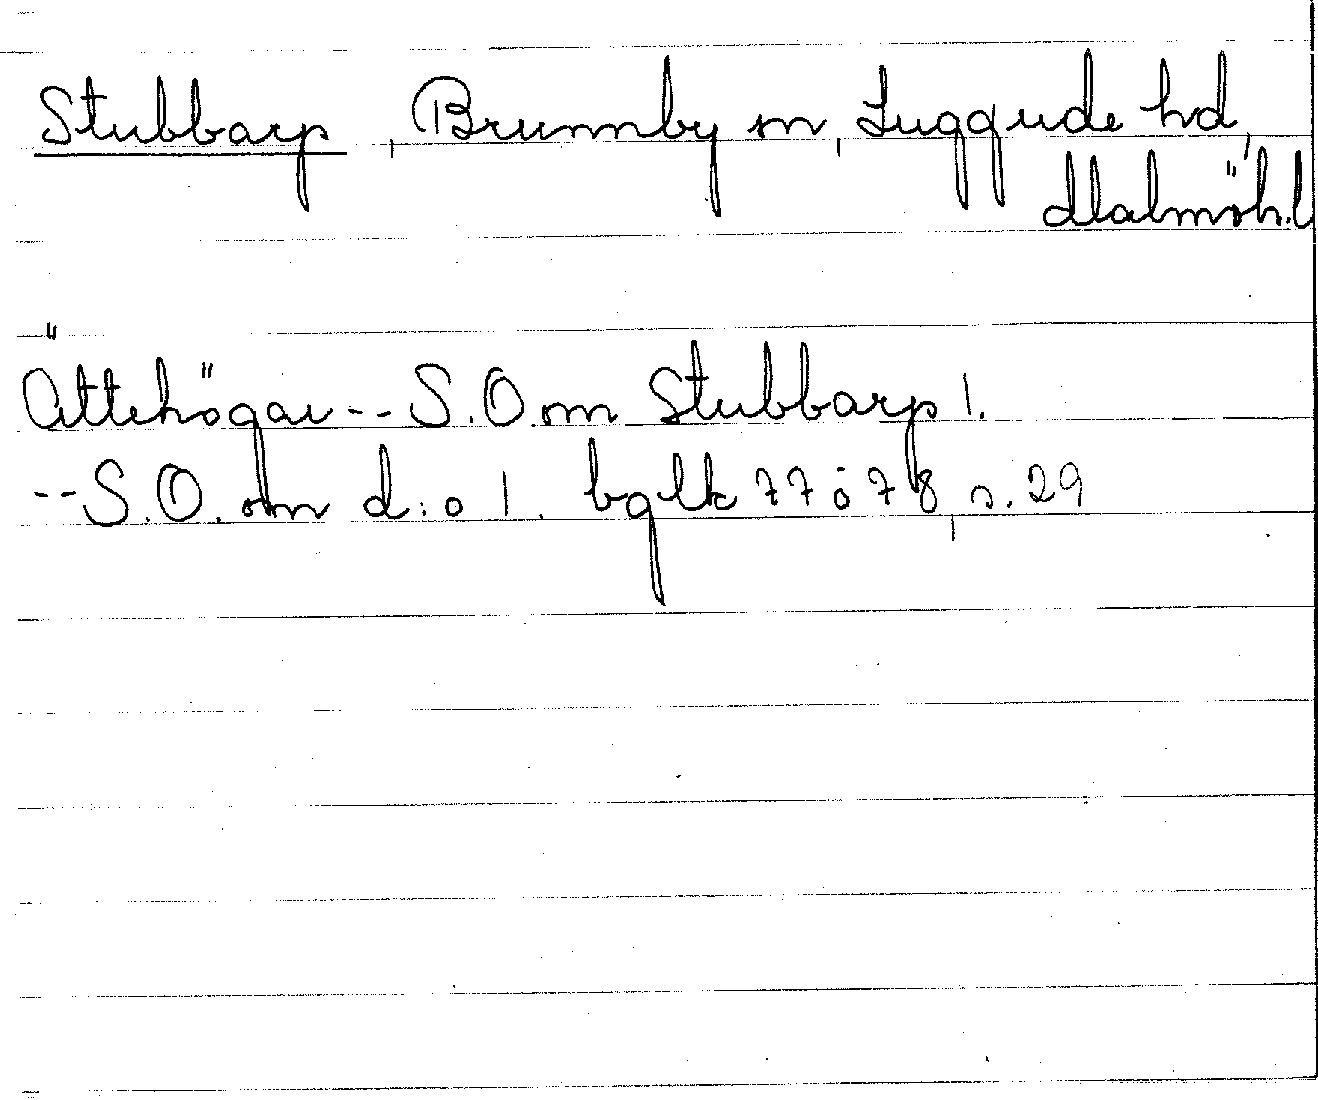 Stubbarp, Brunnby sn, Luggude hd,
Malmöh.l
Ättehögar -- S.O. om Stubbarp 1.
-- S.O. om d:o 1. bglk 77 o 78, s. 29